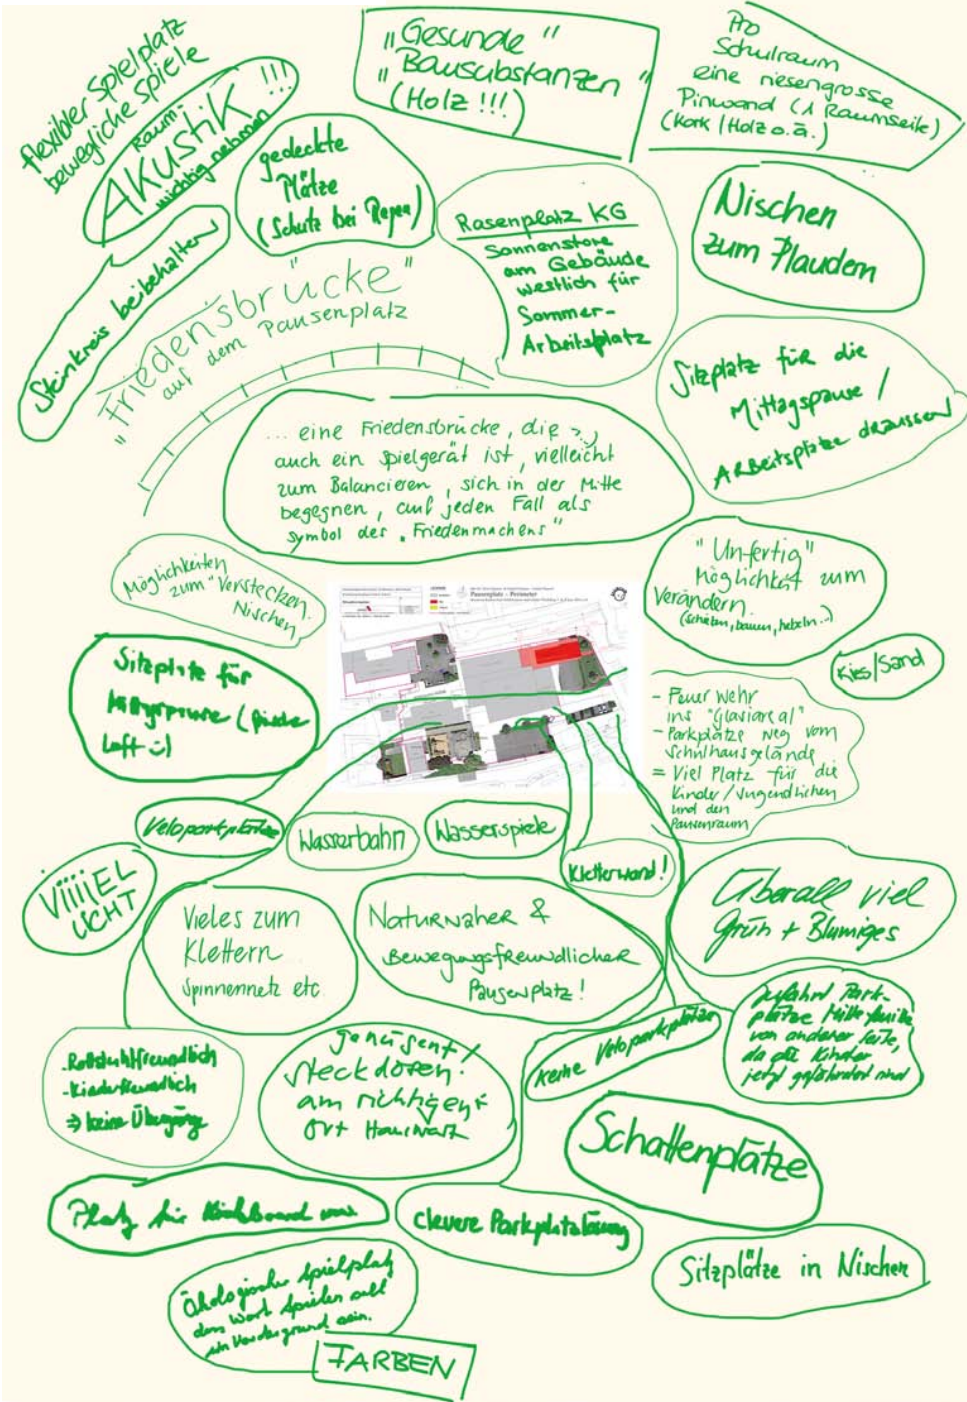 flexibler Spielplatz
bewegliche Spiele
Raum-
AKUSTIK !!!
wichtig nehmen
"Gesunde"
"Bausubstanzen"
(Holz !!!)
Pro
Schulraum
eine riesengrosse
Pinwand (1 Raumseite)
(Kork / Holz o.ä.)
gedeckte
Plätze
(Schutz bei Regen)
Rasenplatz KG
Sonnenstore
am Gebäude
westlich für
Sommer-
Arbeitsplatz
Nischen
zum Plaudern
Steinkreis beibehalten
"Friedensbrücke"
auf dem Pausenplatz
Sitzplatz für die
Mittagspause /
Arbeitsplätze draussen
... eine Friedensbrücke, die
auch ein Spielgerät ist, vielleicht
zum Balancieren, sich in der Mitte
begegnen, auf jeden Fall als
Symbol des "Friedenmachens"
Möglichkeiten
zum "Verstecken"
Nischen
"Un-fertig"
Möglichkeit zum
Verändern.
(schieben, bauen, hebeln...)
Pausenplatz - Perimeter
Sitzplatz für
Mittagspause (frische
Luft :-)
Kies/Sand
- Feuerwehr
ins "Glasiareal"
- Parkplätze weg vom
Schulhausgelände
= Viel Platz für die
Kinder/Jugendlichen
und den
Pausenraum
Veloparkplätze
Wasserbahn
Wasserspiele
Kletterwand!
ViiiiEL
LICHT
Vieles zum
Klettern
Spinnennetz etc.
Naturnaher &
Bewegungsfreundlicher
Pausenplatz!
Überall viel
Grün + Blumiges
Zufahrt Park-
plätze
von anderer Seite,
da Kinder
jetzt gefährdet sind
keine Veloparkplätze
- Rollstuhlfreundlich
- Kinderfreundlich
⇒ keine Übergänge
genügend /
Steckdosen!
am richtigen
Ort Hauswart
Schattenplätze
Platz für Kickboard usw.
clevere Parkplatzlösung
Sitzplätze in Nischen
Ökologischer Spielplatz
das Wort Spielen soll
im Vordergrund sein.
FARBEN